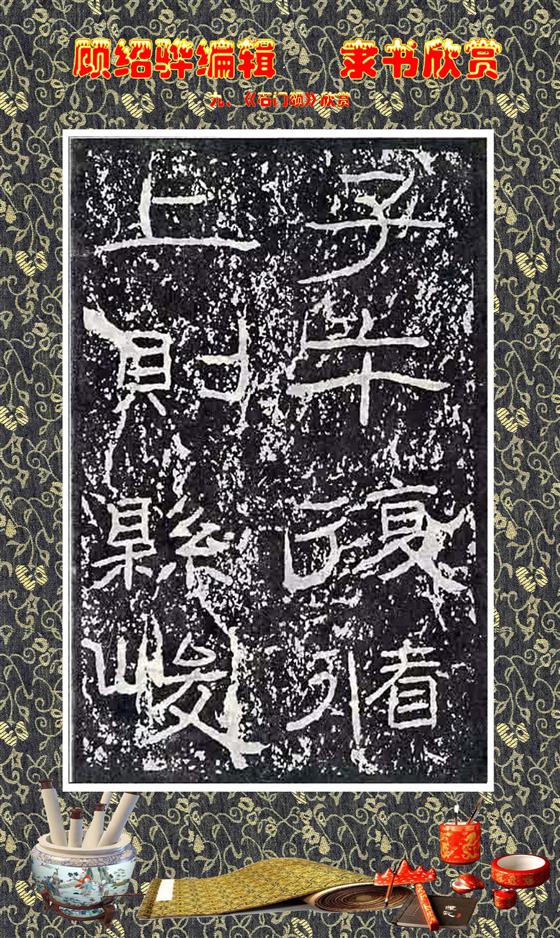 顾绍骅编辑 隶书欣赏
九、《石门颂》欣赏
子午復循
上則縣峻